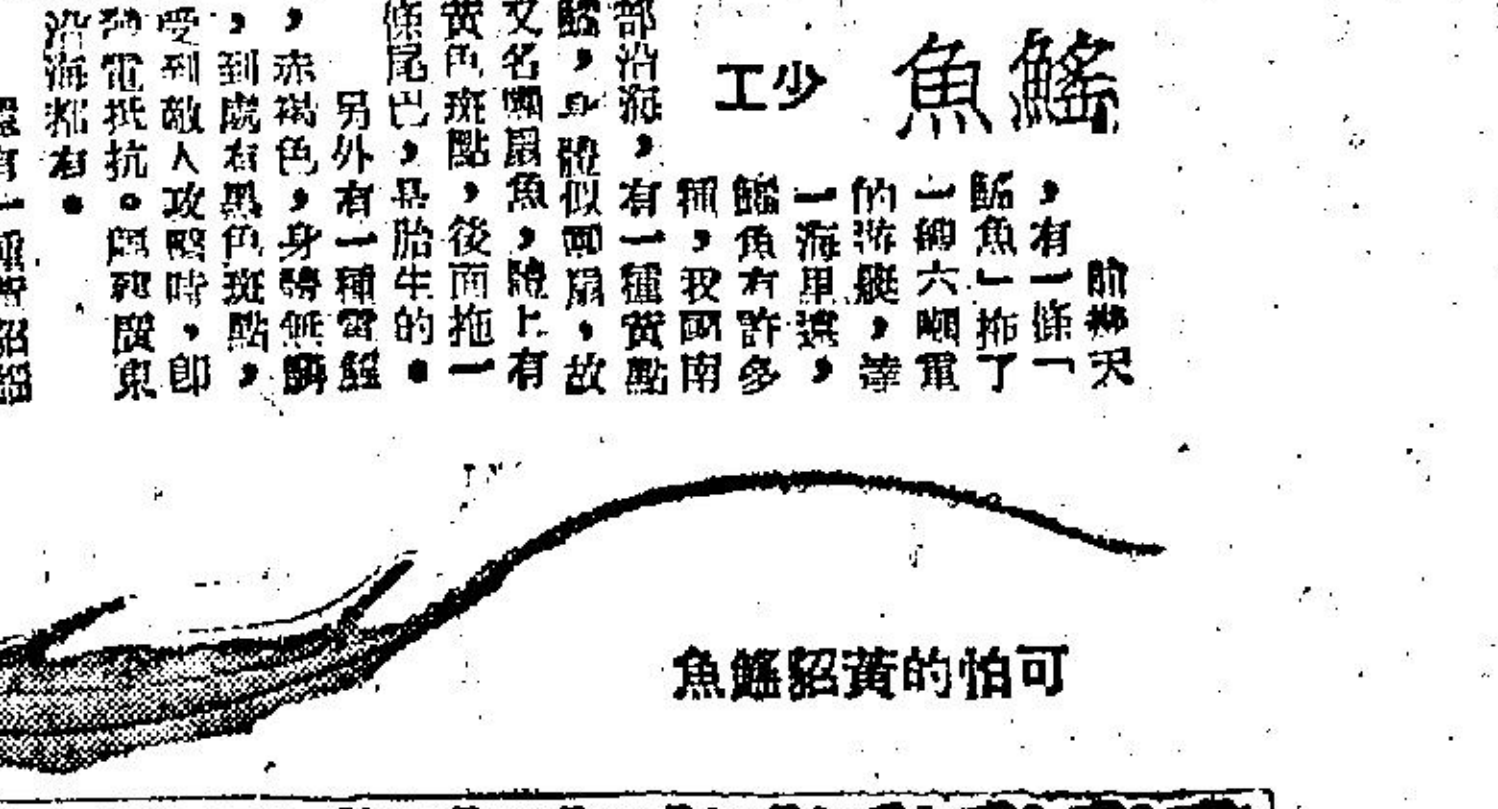 鰩魚
少工
前幾天
，有一條「
鰩魚」拖了
一艘六噸重
的游艇，達
一海里遠，
鰩魚有許多
種，我國南
部沿海，有一種黃點
鰩，身體似團扇，故
又名團扇魚，體上有
黃色斑點，後面拖一
條尾巴，是胎生的。
另外有一種電鰩
，赤褐色，身體無鱗
，到處有黑色斑點，
受到敵人攻擊時，即
發電抵抗。廣東
沿海都有。
還有一種
可怕的黃貂鰩魚